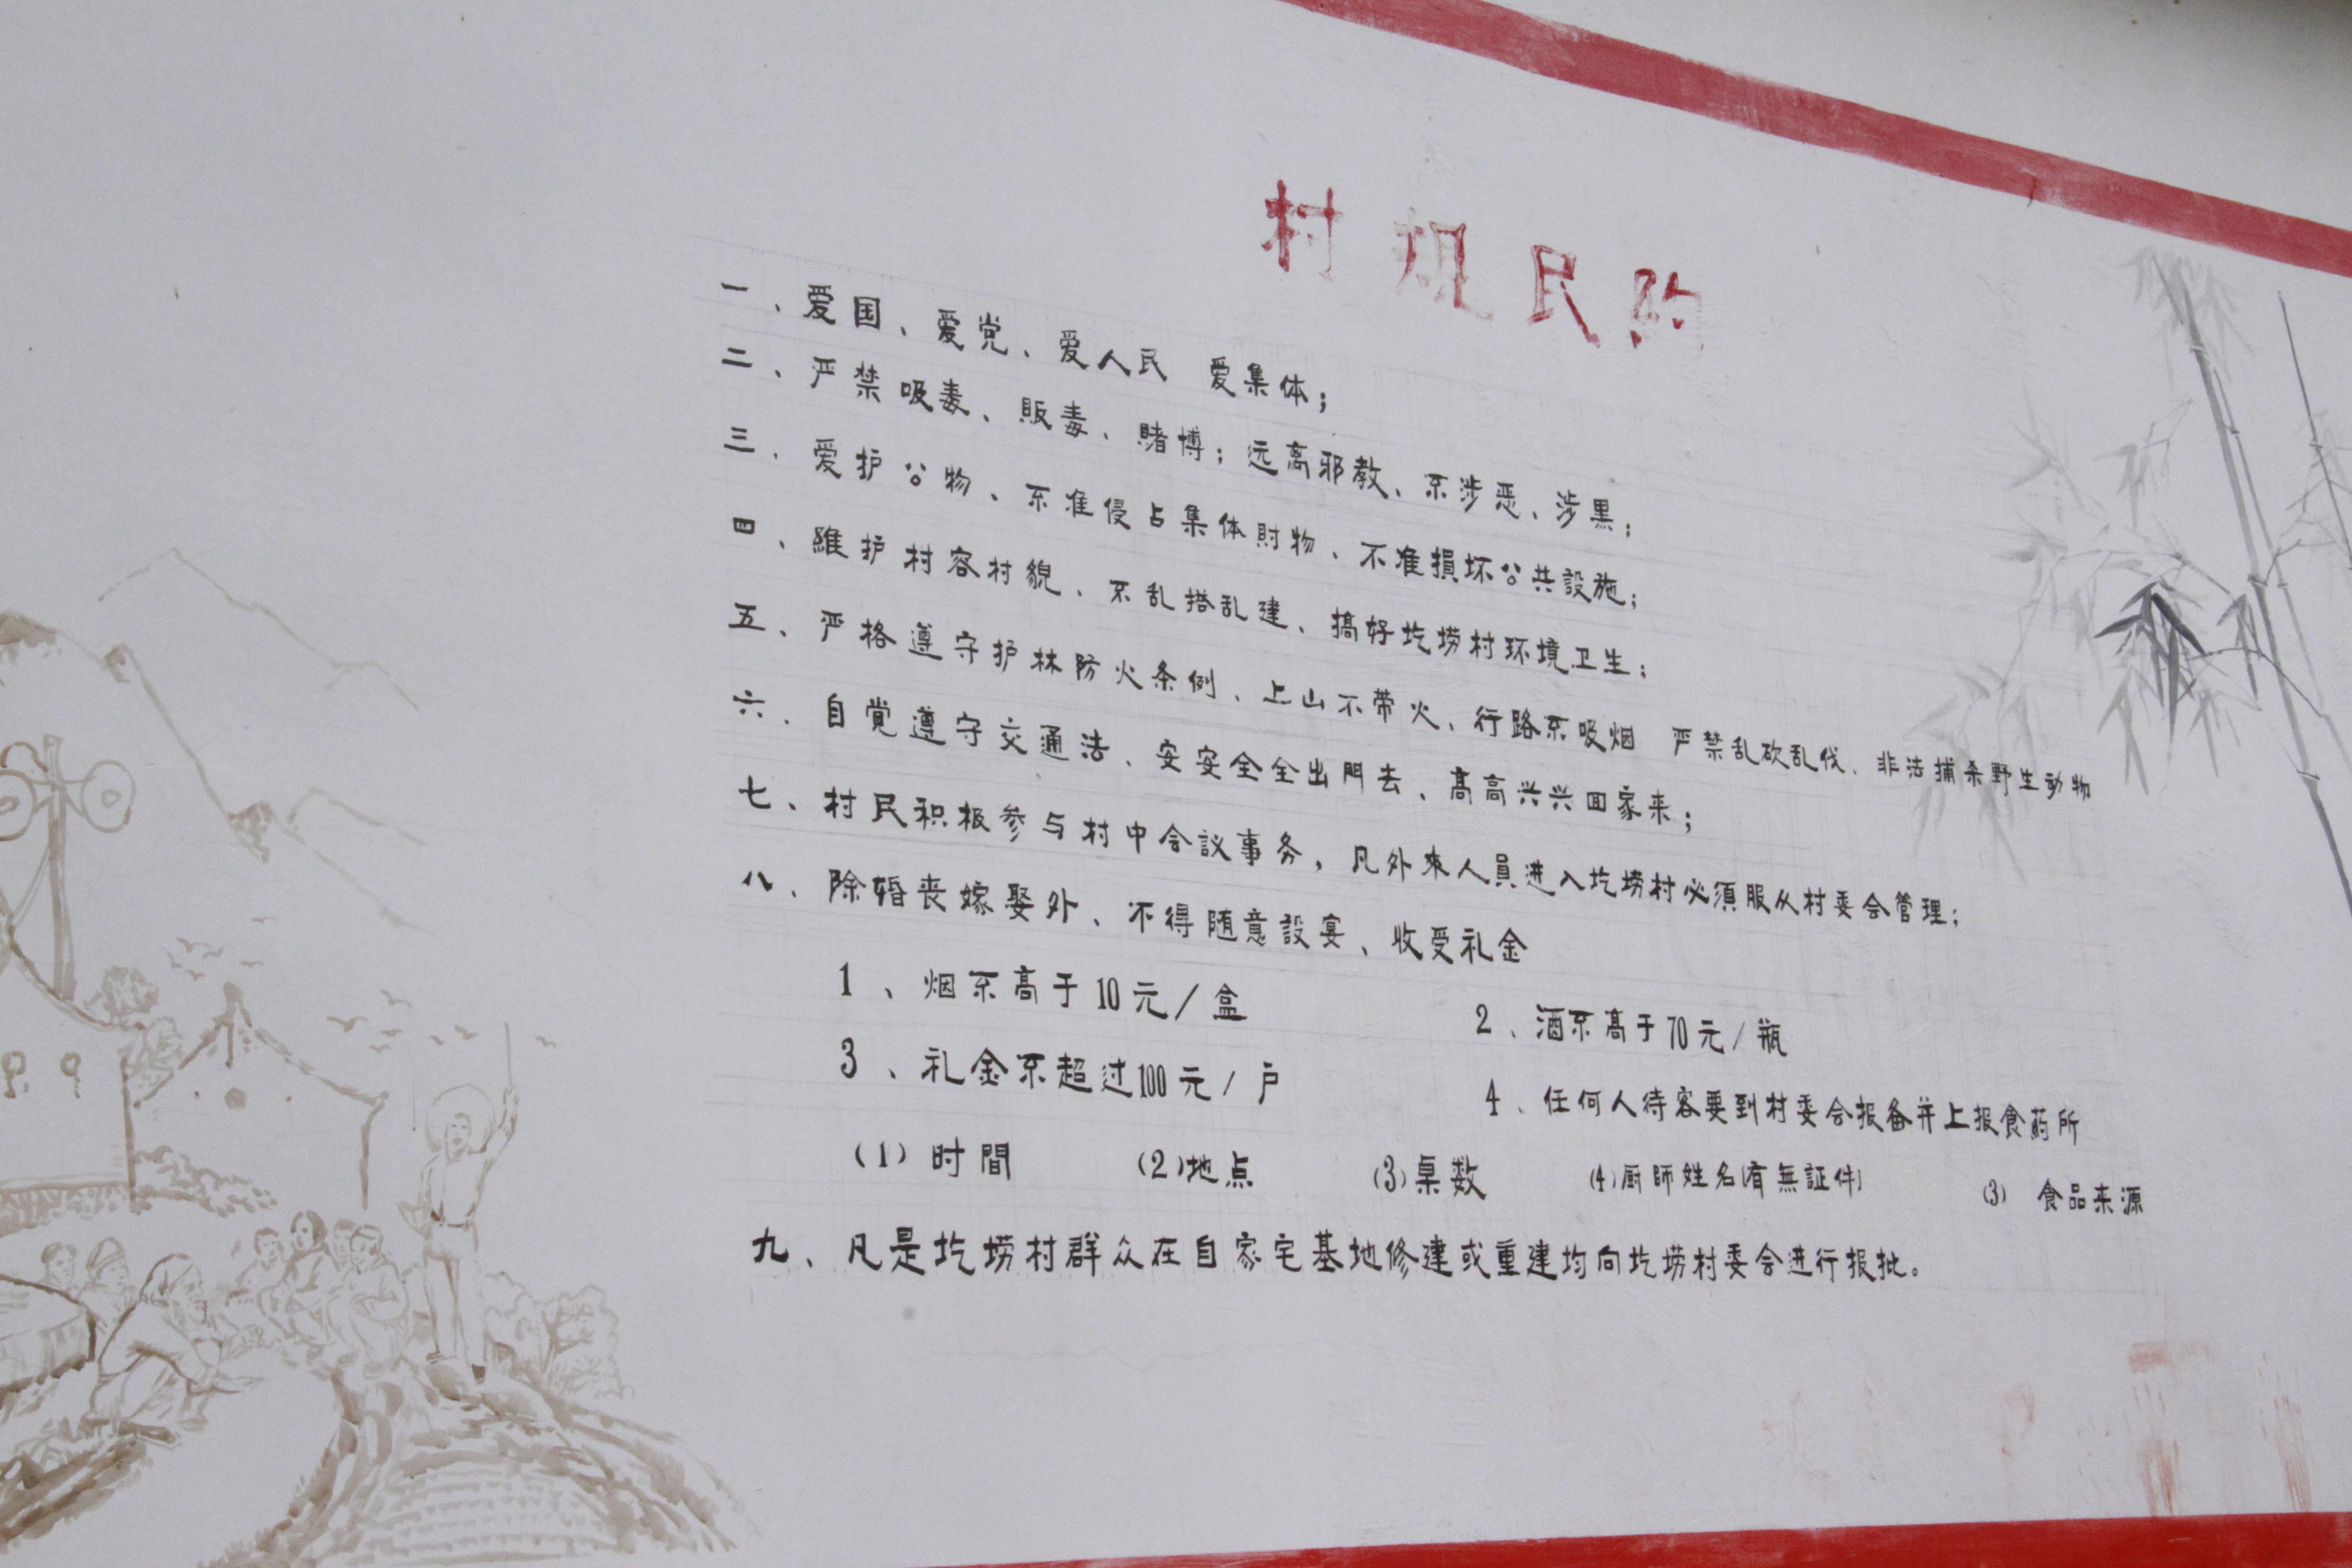 村规民约
一、爱国、爱党、爱人民 爱集体；
二、严禁吸毒、販毒、賭博；远离邪教、不涉恶、涉黑；
三、爱护公物、不准侵占集体財物、不准損坏公共設施；
四、維护村容村貌、不乱搭乱建、搞好圪塝村环境卫生；
五、严格遵守护林防火条例、上山不带火、行路不吸烟 严禁乱砍乱伐、非法捕杀野生动物
六、自覚遵守交通法、安安全全出門去、高高兴兴回家来；
七、村民积极参与村中会議事务，凡外來人員进入圪塝村必須服从村委会管理；
八、除婚丧嫁娶外、不得随意設宴、收受礼金
1、烟不高于10元/盒 2、酒不高于70元/瓶
3、礼金不超过100元/户 4、任何人待客要到村委会报备并上报食药所
(1)时間 (2)地点 (3)桌数 (4)厨師姓名(有無証件) (3) 食品来源
九、凡是圪塝村群众在自家宅基地修建或重建均向圪塝村委会进行报批。